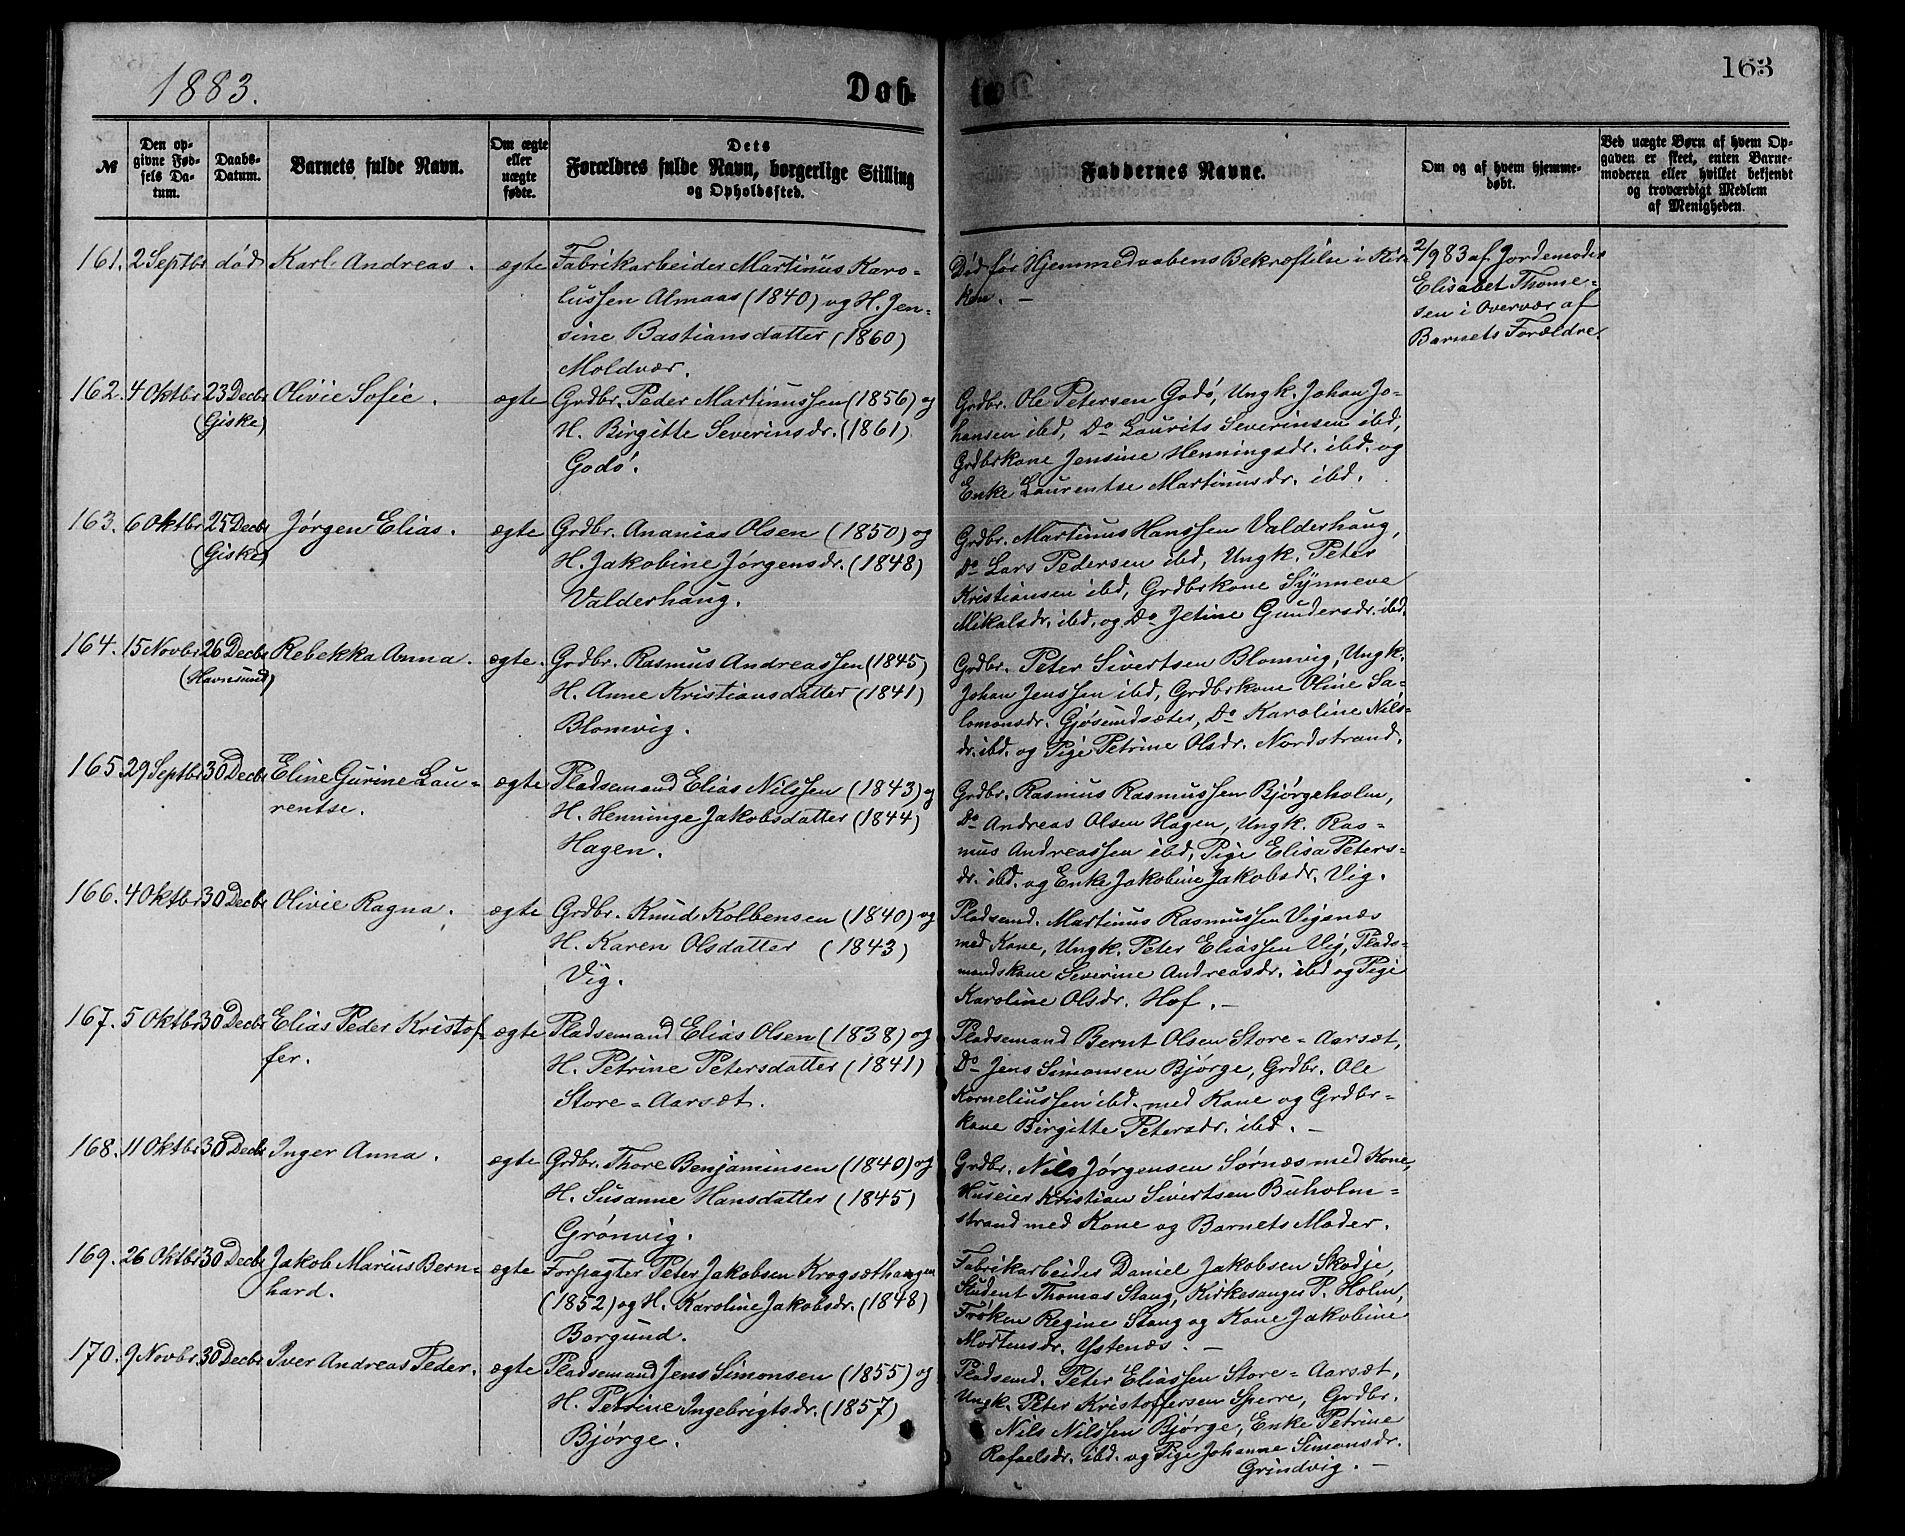 1883.
Dåb.
163
№
Den op-
givne Fød-
sels Da-
tum.
Daabs-
Datum.
Barnets fulde Navn.
Om ægte
eller
uægte
fødte.
Dets
Forældres fulde Navn, borgerlige Stilling
og Opholdssted.
Faddernes Navne.
Om og af hvem hjemme-
døbt.
Ved uægte Børn af hvem Op-
gaven er skeet, enten Barne-
moderen eller hvilket bekjendt
og troværdigt Medlem
af Menigheden.
161. 2 Septbr død Karl Andreas. ægte Fabrikarbeider Martinus Karo-
lussen Almaas (1840) og H. Jen-
sine Bastiansdatter (1860)
Moldvær.
Død før Hjemmedaabens Bekræftelse i Kir-
ken. —
2/9 83 af Jordemoder
Elisabet Thome-
sen i Overvær af
Barnets Forældre.
162. 4 Oktbr 23 Decbr Olivie Sofie. ægte Grdbr. Peder Martinussen (1856) og
(Giske) H. Birgitte Severinsdr. (1861)
Godø.
Grdbr. Ole Petersen Godø, Ungk. Johan Jo-
hansen ibd, Do Laurits Severinsen ibd,
Grdbrkone Jensine Henningsdr. ibd. og
Enke Laurentse Martinusdr. ibd.
163. 6 Oktbr 25 Decbr Jørgen Elias. ægte Grdbr. Ananias Olsen (1850) og
(Giske) H. Jakobine Jørgensdr. (1848)
Valderhaug.
Grdbr. Martinus Hanssen Valderhaug,
Do Lars Pedersen ibd, Ungk. Peter
Kristiansen ibd, Grdbrkone Synneve
Mikalsdr. ibd, og Do Jetine Gundersdr. ibd.
164. 15 Novbr 26 Decbr Rebekka Anna. ægte. Grdbr. Rasmus Andreassen (1845)
(Havnsund) H. Anne Kristiansdatter (1841)
Blomvig.
Grdbr. Peter Sivertsen Blomvig, Ungk.
Johan Jenssen ibd, Grdbrkone Oline Sa-
lomonsdr. Gjøsundsæter, Do Karoline Nils-
dr. ibd. og Pige Petrine Olsdr. Nordstrand.
165 29 Septbr 30 Decbr Eline Gurine Lau- ægte Pladsemand Elias Nilssen (1843) og
rentse. H. Henninge Jakobsdatter (1844)
Hagen.
Grdbr. Rasmus Rasmussen Bjørgeholm,
Do Andreas Olsen Hagen, Ungk. Ras-
mus Andreassen ibd, Pige Elisa Peters-
dr. ibd. og Enke Jakobine Jakobsdr. Vig.
166. 4 Oktbr 30 Decbr Olivie Ragna. ægte Grdbr. Knud Kolbensen (1840) og
H. Karen Olsdatter (1843)
Vig.
Pladsemd. Martinus Rasmussen Vigsnæs
med Kone, Ungk. Peter Eliassen Vig, Plads-
mandskone Severine Andreasdr. ibd og Pige
Karoline Olsdr. Hof. —
167. 5 Oktbr 30 Decbr Elias Peder Kristof- ægte Pladsemand Elias Olsen (1838) og
fer. H. Petrine Petersdatter (1841)
Store-Aarsæt.
Pladsemand Bernt Olsen Store-Aarsæt,
Do Jens Simonsen Bjørge, Grdbr. Ole
Korneliussen ibd. med Kone og Grdbr-
kone Birgitte Petersdr. ibd. —
168. 11 Oktbr 30 Decbr Inger Anna. ægte Grdbr. Thore Benjaminsen (1840) og
H. Susanne Hansdatter (1845)
Grønvig.
Grdbr. Nils Jørgensen Sørnæs med Kone,
Huseier Kristian Sivertsen Buholm-
strand med Kone og Barnets Moder.
169. 26 Oktbr 30 Decbr Jakob Marius Bern- ægte Forpagter Peter Jakobsen Krogsæthagen
hard. (1852) og H. Karoline Jakobsdr. (1848)
Borgund.
Fabrikarbeider Daniel Jakobsen Skodje,
Student Thomas Stang, Kirkesanger P. Holm,
Frøken Regine Stang og Kone Jakobine
Mortensdr. Ystenæs. —
170. 9 Novbr 30 Decbr Iver Andreas Peder. ægte Pladsemand Jens Simonsen (1855) og
H. Petrine Ingebrigtsdr. (1857)
Bjørge.
Pladsemd. Peter Eliassen Store-Aarsæt,
Ungk. Peter Kristoffersen Sperre, Grdbr.
Nils Nilssen Bjørge, Enke Petrine
Rafaelsdr. ibd. og Pige Johanne Simonsdr.
Grindvig. —